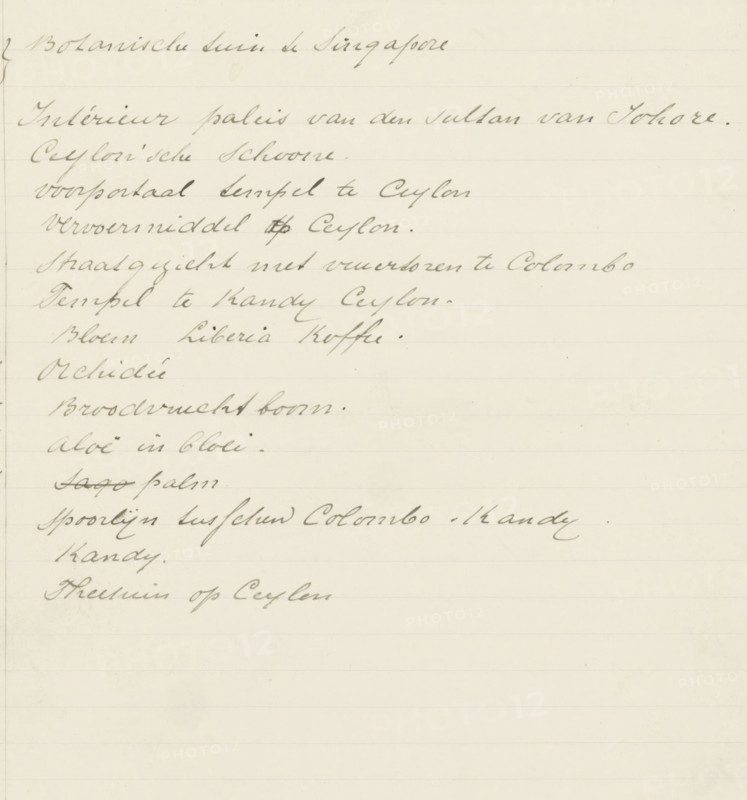 Botanische tuin te Singapore
Intérieur paleis van den sultan van Johore.
Ceylon'sche Schoone.
voorportaal tempel te Ceylon
Vervoermiddel op Ceylon.
Straatgezicht met vuurtoren te Colombo
Tempel te Kandy Ceylon.
Bloem Liberia Koffie.
Orchidée
Broodvruchtboom.
Aloë in bloei.
Sago palm
Spoorlijn tusschen Colombo - Kandy.
Kandy.
Theetuin op Ceylon
PHOTO12